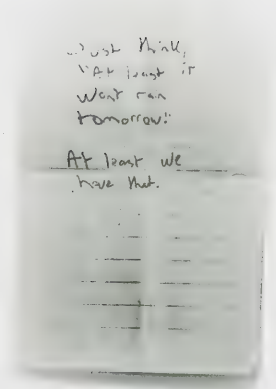 ...Just think,
"At least it
wont rain
tomorrow!"
At least we
have that.